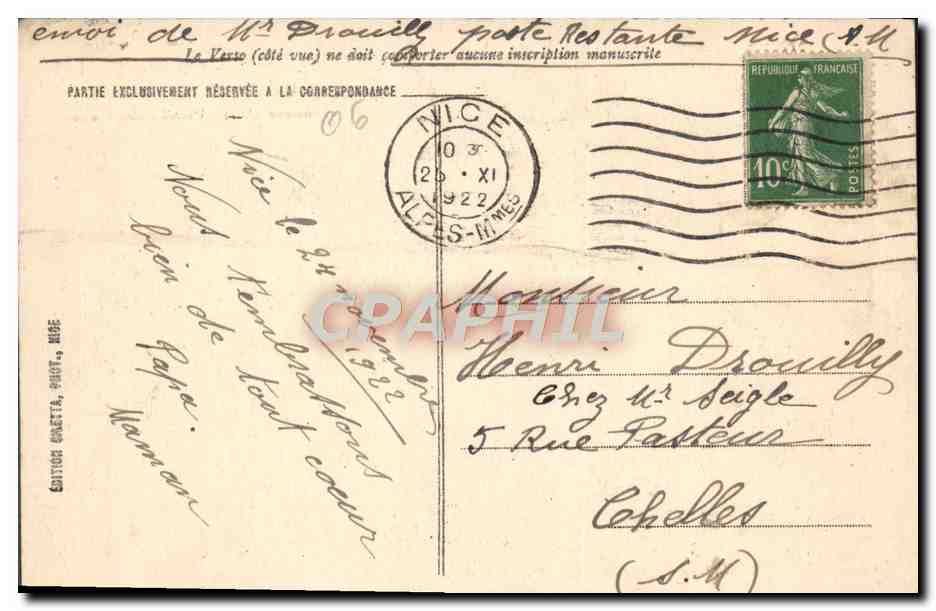 envoi de Mr Drouilly poste Restante Nice (A M
Le Verso (côté vue) ne doit comporter aucune inscription manuscrite
PARTIE EXCLUSIVEMENT RÉSERVÉE A LA CORRESPONDANCE
06
NICE
10
25 · XI
1922
ALPES-MMES
REPUBLIQUE FRANÇAISE
10c
POSTES
Nice le 24 novembre
1922
Nous t'embrassons
bien de tout coeur
Papa. Maman
ÉDITION GILETTA, PHOT., NICE
CPAPHIL
Monsieur
Henri Drouilly
Chez Mr Seigle
5 Rue Pasteur
Chelles
(S.M)